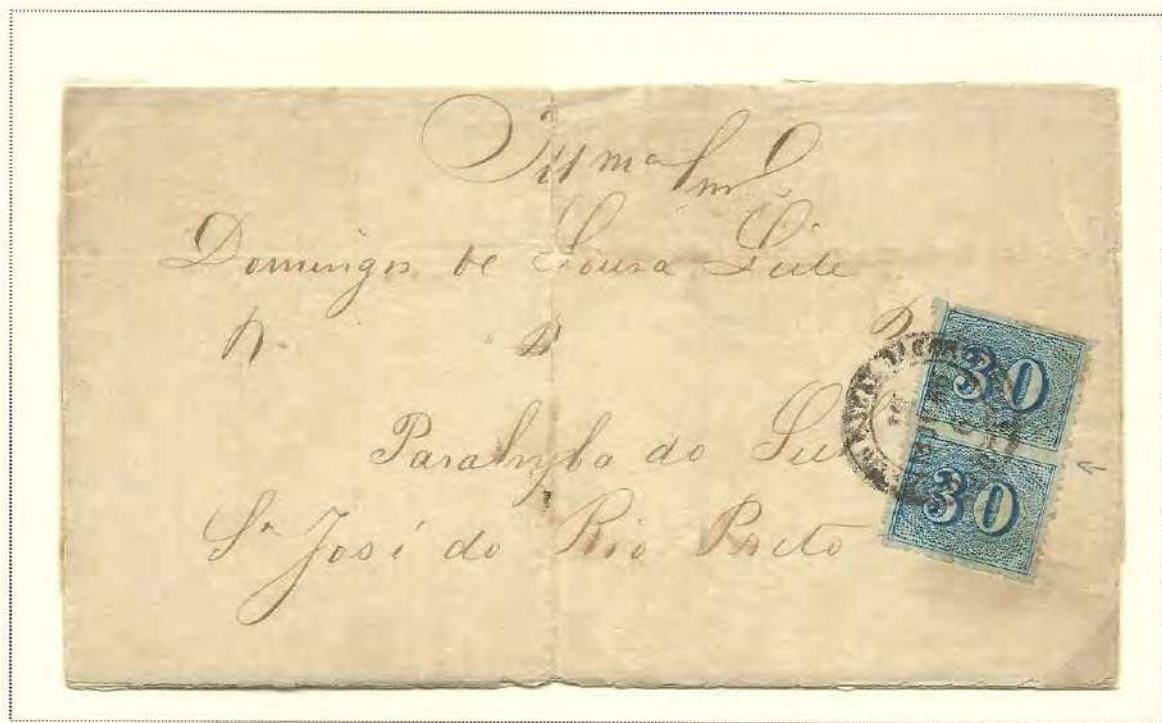 Illmo Snr
Domingos de Sousa Leite
Parahyba do Sul
Sn José do Rio Preto
30
30